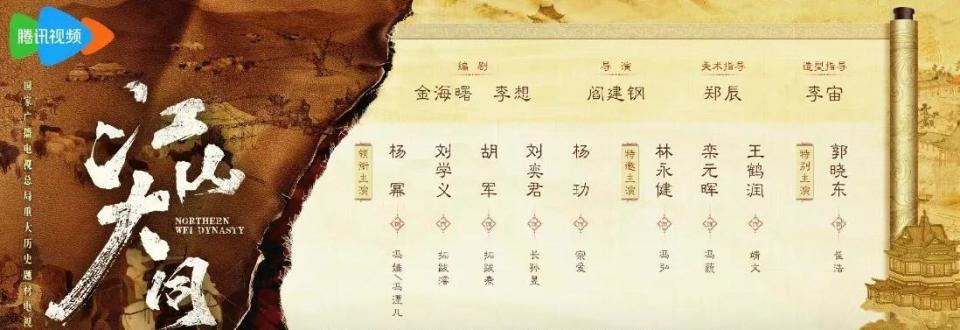 腾讯视频
国家广播电视总局重大历史题材电视
江山大同
NORTHERN
WEI DYNASTY
编剧
金海曙 李想
导演
阎建钢
美术指导
郑辰
造型指导
李宙
领衔主演
杨幂
刘学义
拓跋濬
胡军
拓跋焘
刘奕君
长孙
杨玏
宗爱
特邀主演
林永健
冯弘
栾元晖
冯
王鹤润
靖文
特别主演
郭晓东
崔浩